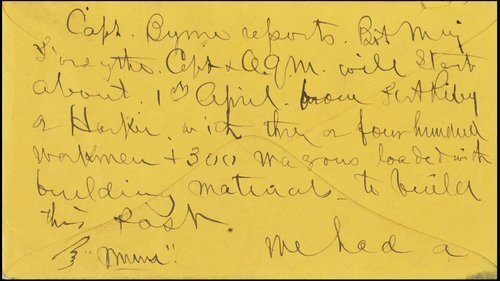 Capt. Byrne reports. Bvt Maj
Forsythe. Capt & A.Q.M. will start
about 1st April. from Fort Riley
or Harker, with three or four hundred
workmen + 300 wagons loaded with
building materials to build
this Post.
We had a